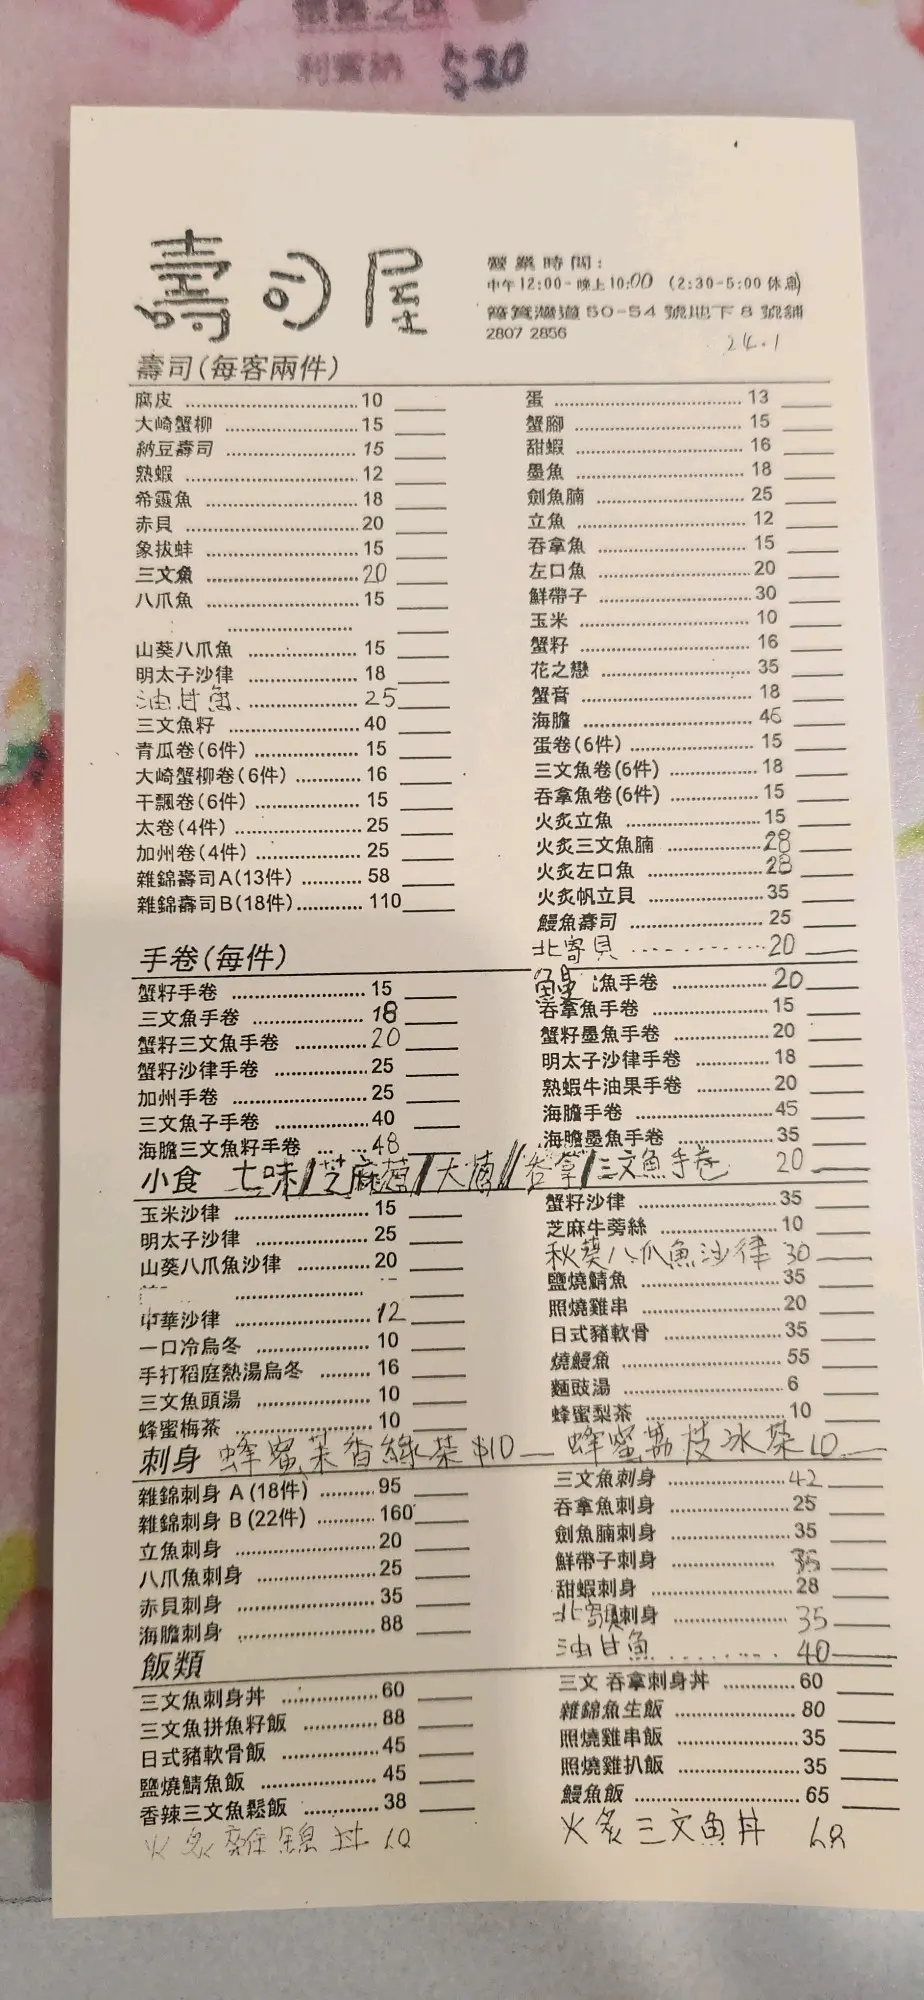 利賓納 $20
壽司屋
營業時間:
中午12:00-晚上10:00 (2:30-5:00休息)
窩打灣道50-54號地下8號舖
2807 2856
24.1
壽司(每客兩件)
腐皮 10
大崎蟹柳 15
納豆壽司 15
熟蝦 12
希靈魚 18
赤貝 20
象拔蚌 15
三文魚 20
八爪魚 15
山葵八爪魚 15
明太子沙律 18
油甘魚 25
三文魚籽 40
青瓜卷(6件) 15
大崎蟹柳卷(6件) 16
干瓢卷(6件) 15
太卷(4件) 25
加州卷(4件) 25
雜錦壽司A(13件) 58
雜錦壽司B(18件) 110
蛋 13
蟹腳 15
甜蝦 16
墨魚 18
劍魚腩 25
立魚 12
吞拿魚 15
左口魚 20
鮮帶子 30
玉米 10
蟹籽 16
花之戀 35
蟹膏 18
海膽 45
蛋卷(6件) 15
三文魚卷(6件) 18
吞拿魚卷(6件) 15
火炙立魚 15
火炙三文魚腩 28
火炙左口魚 28
火炙帆立貝 35
鰻魚壽司 25
北寄貝 20
手卷(每件)
蟹籽手卷 15
三文魚手卷 18
蟹籽三文魚手卷 20
蟹籽沙律手卷 25
加州手卷 25
三文魚子手卷 40
海膽三文魚籽手卷 48
鰻魚手卷 20
吞拿魚手卷 15
蟹籽墨魚手卷 20
明太子沙律手卷 18
熟蝦牛油果手卷 20
海膽手卷 45
海膽墨魚手卷 35
小食 七味/芝麻蔥/大蔥/吞拿/三文魚手卷 20
玉米沙律 15
明太子沙律 25
山葵八爪魚沙律 20
中華沙律 12
一口冷烏冬 10
手打稻庭熱湯烏冬 16
三文魚頭湯 10
蜂蜜梅茶 10
蟹籽沙律 35
芝麻牛蒡絲 10
秋葵八爪魚沙律 30
鹽燒鯖魚 35
照燒雞串 20
日式豬軟骨 35
燒鰻魚 55
麵豉湯 6
蜂蜜梨茶 10
刺身 蜂蜜茉香綠茶 $10 蜂蜜荔枝冰茶 10
雜錦刺身 A (18件) 95
雜錦刺身 B (22件) 160
立魚刺身 20
八爪魚刺身 25
赤貝刺身 35
海膽刺身 88
三文魚刺身 42
吞拿魚刺身 25
劍魚腩刺身 35
鮮帶子刺身 35
甜蝦刺身 28
北寄貝刺身 35
油甘魚 40
飯類
三文魚刺身丼 60
三文魚拼魚籽飯 88
日式豬軟骨飯 45
鹽燒鯖魚飯 45
香辣三文魚鬆飯 38
火炙雜錦丼 68
三文 吞拿刺身丼 60
雜錦魚生飯 80
照燒雞串飯 35
照燒雞扒飯 35
鰻魚飯 65
火炙三文魚丼 68